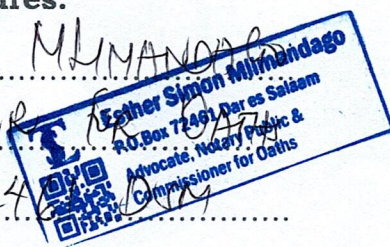 ures.
MLIMANDAGO
Esther Simon Mlimandago
P.O.Box 72461 Dar es Salaam
Advocate, Notary Public &
Commissioner for Oaths
OATH
DSM